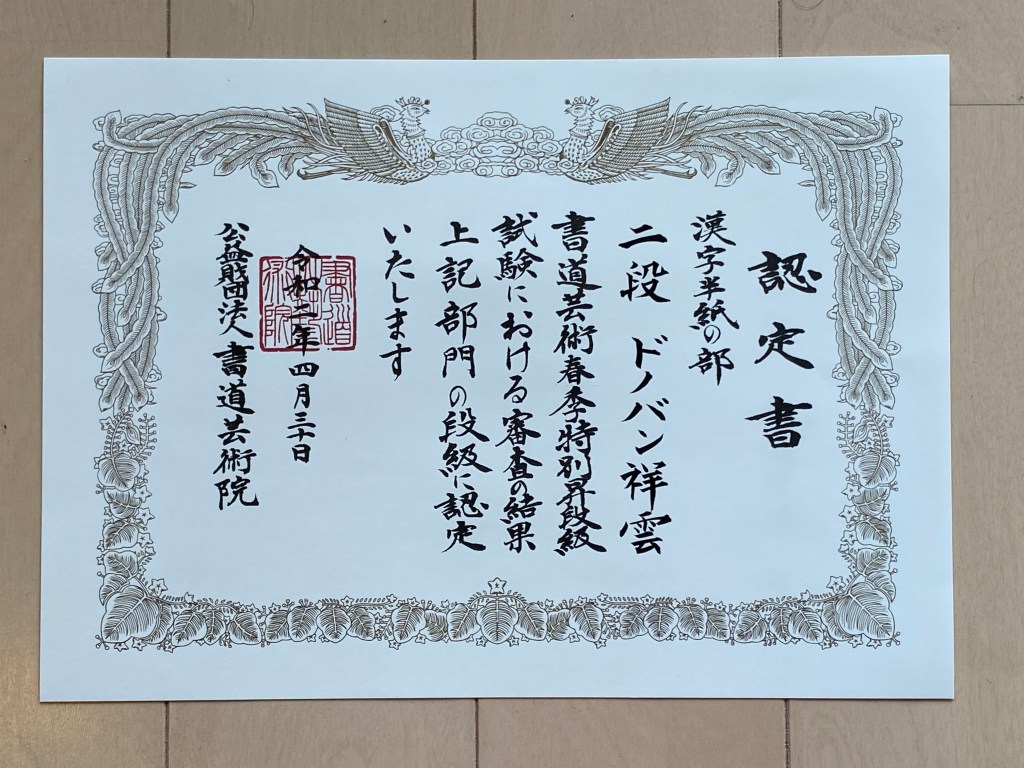 認定書
漢字半紙の部
二段 ドノバン祥雲
書道芸術春季特別昇段級
試験における審査の結果
上記部門の段級に認定
いたします
令和二年四月三十日
公益財団法人書道芸術院